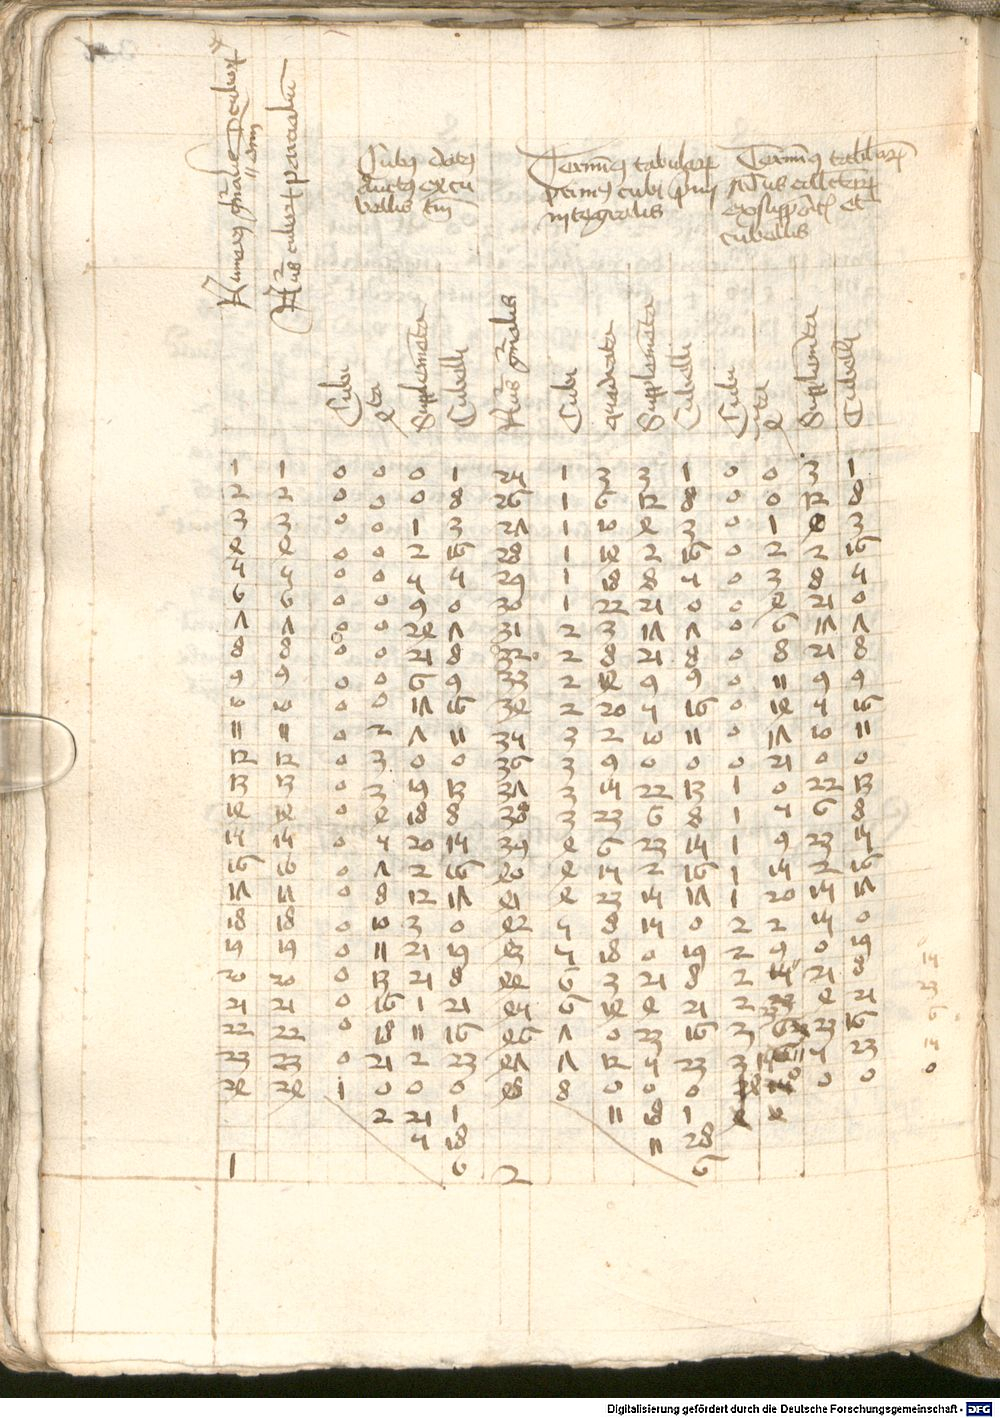 Numerus gnalis cubicorum
Nus cubicorum partialium
Cubus datus
ductus ex cu
bellis tm
Terminus tabularum
primus cubi
integralis
Terminus tabularum
ex supplentis et
cubellis
Cubi
qta
Supplementa
Cubelli
Nus gnalis
Cubi
quadrata
Supplementa
Cubelli
Cubi
qta
Supplementa
Cubelli
1 1 0 0 0 1 25 1 3 3 1 0 0 3 1
2 2 0 0 0 8 26 1 6 12 8 0 0 12 8
3 3 0 0 1 3 27 1 10 4 3 0 1 3
4 4 0 0 2 16 28 1 14 2 16 0 2 2 16
5 5 0 0 5 5 29 1 18 8 5 0 3 8 5
6 6 0 0 9 0 30 1 22 21 0 0 4 21 0
7 7 0 0 14 7 31 2 3 17 7 0 6 17 7
8 8 0 0 21 8 32 2 8 21 8 0 8 21 8
9 9 0 0 6 9 33 2 14 9 9 0 11 9 9
10 10 0 0 17 16 34 2 20 5 16 0 14 5 16
11 11 0 2 7 11 35 3 2 10 11 0 17 10 11
12 12 0 3 0 0 36 3 9 0 0 0 21 0 0
13 13 0 3 19 13 37 3 15 22 13 1 0 22 13
14 14 0 4 18 8 38 3 23 6 8 1 5 6 8
15 15 0 5 20 15 39 4 6 23 15 1 9 23 15
16 16 0 7 2 16 40 4 15 2 16 1 15 2 16
17 17 0 8 12 17 41 4 23 15 17 1 20 15 17
18 18 0 10 3 0 42 5 8 15 0 2 2 15 0
19 19 0 11 21 19 43 5 18 0 19 2 9 0 19
20 20 0 13 21 8 44 6 3 21 8 2 21 8 15
21 21 0 16 1 21 45 6 14 4 21 2 4 21 23
22 22 0 18 11 16 46 7 0 23 16 2 23 16 6
23 23 0 21 2 23 47 7 12 5 23 3 5 23 15
24 24 1 0 0 0 48 8 0 0 0 0 0 0
2 21 1 11 18 1
5 18 11 28
1 6 2 6
Digitalisierung gefördert durch die Deutsche Forschungsgemeinschaft - DFG